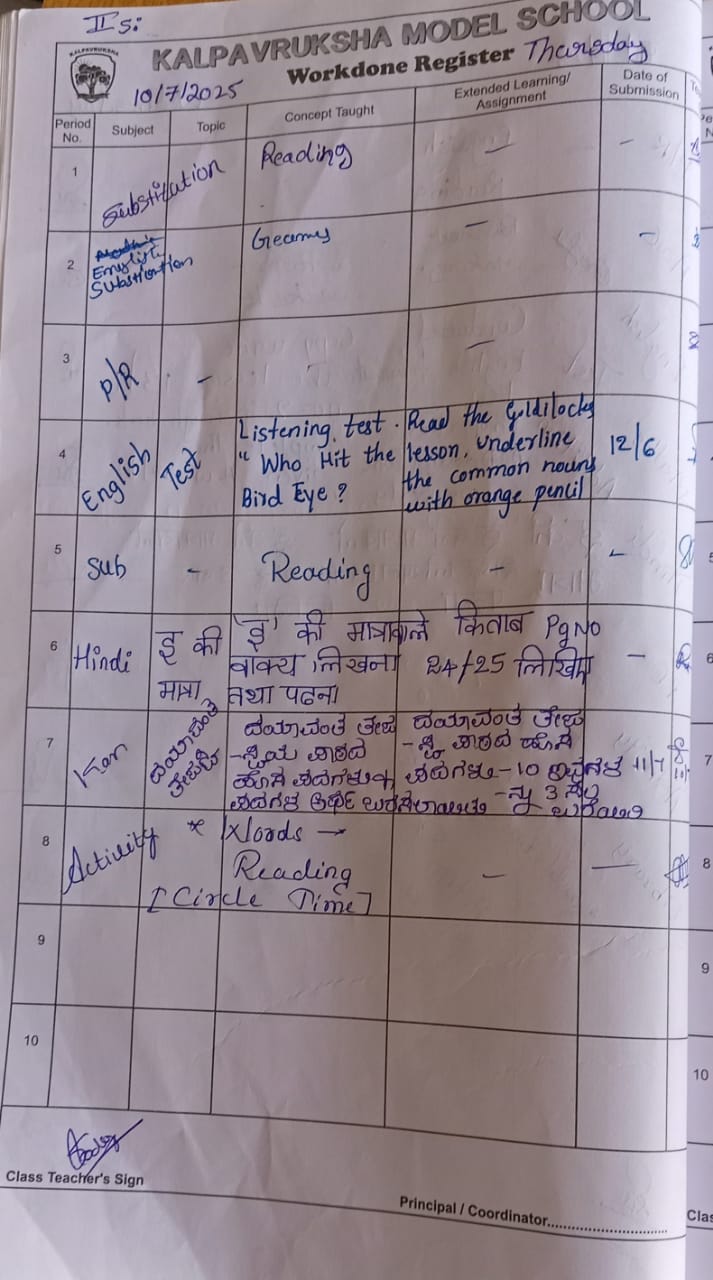 II S:
KALPAVRUKSHA
KALPAVRUKSHA MODEL SCHOOL
Workdone Register Thursday
10/7/2025
Period No. Subject Topic Concept Taught Extended Learning/ Assignment Date of Submission
1 Substitution Reading – –
2 English Substitution Geames – –
3 P/R – –
4 English Test Listening test. Read the Goldilocks 12/6
"Who Hit the lesson, underline
Bird Eye? the common nouns
with orange pencil
5 Sub - Reading – –
6 Hindi इ की 'इ' की मात्रावाले किताब Pg No –
वाक्य लिखना 24/25 लिखिए
मात्रा तथा पढना
7 Kan ದಯಾವಂತ ದಯಾವಂತ ದಯಾವಂತ 11/7
ಹೊಸ
ಹೊಸ ಪದಗಳು - 10
3
8 Activity * Words →
Reading – —
[Circle Time]
9
10
Class Teacher's Sign
Principal / Coordinator
6
7
8
9
10
Clas